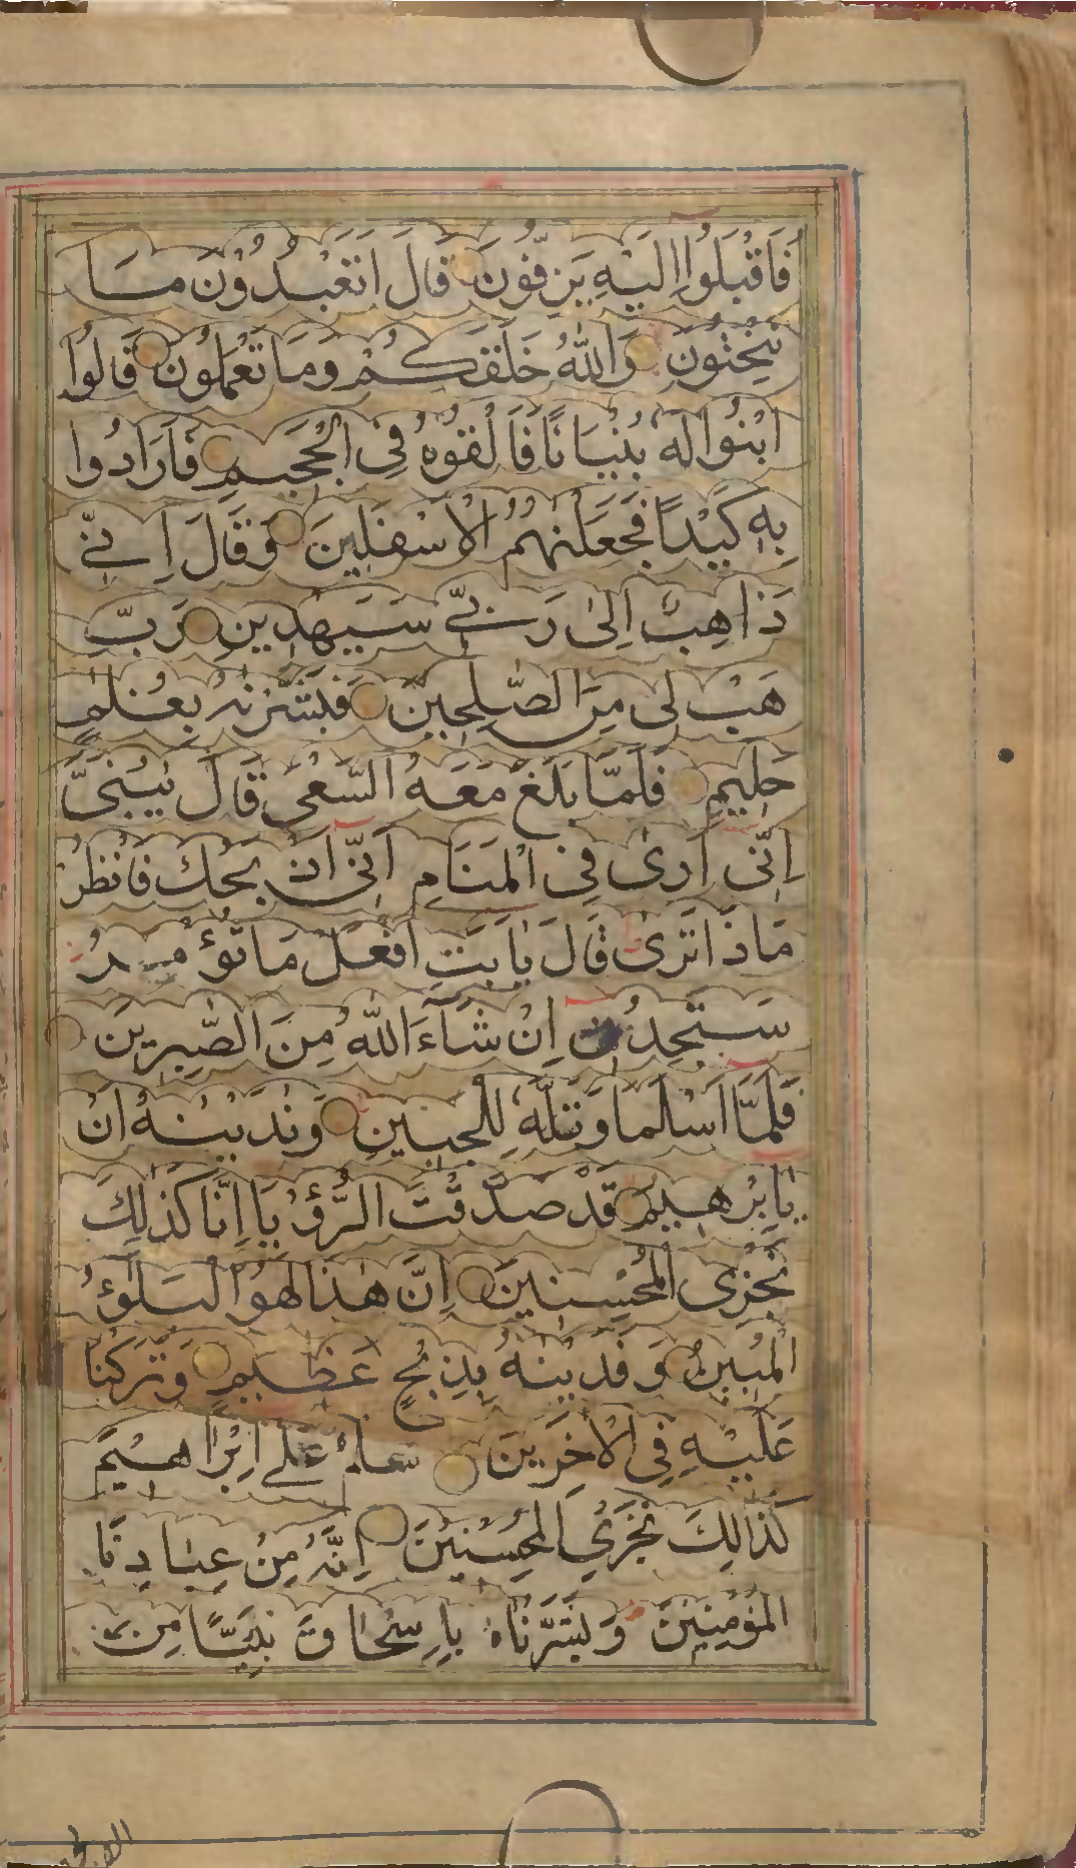 فَاَقْبَلُوْا اِلَيْهِ يَزِفُّونَ قَالَ اَتَعْبُدُوْنَ مَا
تَنْحِتُونَ وَاللّٰهُ خَلَقَكُمْ وَمَا تَعْمَلُونَ قَالُوا
ابْنُوا لَهٗ بُنْيَانًا فَاَلْقُوْهُ فِى الْجَحِيمِ فَاَرَادُوا
بِهٖ كَيْدًا فَجَعَلْنٰهُمُ الْاَسْفَلِينَ وَقَالَ اِنِّى
ذَاهِبٌ اِلٰى رَبِّى سَيَهْدِينِ رَبِّ
هَبْ لِى مِنَ الصّٰلِحِينَ فَبَشَّرْنٰهُ بِغُلٰمٍ
حَلِيمٍ فَلَمَّا بَلَغَ مَعَهُ السَّعْىَ قَالَ يٰبُنَىَّ
اِنِّى اَرٰى فِى الْمَنَامِ اَنِّى اَذْبَحُكَ فَانْظُرْ
مَاذَا تَرٰى قَالَ يٰاَبَتِ افْعَلْ مَا تُؤْمَرُ
سَتَجِدُنِى اِنْ شَآءَ اللّٰهُ مِنَ الصّٰبِرِينَ
فَلَمَّا اَسْلَمَا وَتَلَّهٗ لِلْجَبِينِ وَنٰدَيْنٰهُ اَنْ
يٰاِبْرٰهِيمُ قَدْ صَدَّقْتَ الرُّؤْيَا اِنَّا كَذٰلِكَ
نَجْزِى الْمُحْسِنِينَ اِنَّ هٰذَا لَهُوَ الْبَلٰٓؤُ
الْمُبِينُ وَفَدَيْنٰهُ بِذِبْحٍ عَظِيمٍ وَتَرَكْنَا
عَلَيْهِ فِى الْاٰخَرِينَ سلٰمٌ عَلٰى اِبْرَاهِيمَ
كَذَالِكَ نَجْزِي الْمُحْسِنِينَ اِنَّهُ مِنْ عِبَادِنَا
الْمُؤْمِنِينَ وَبَشَّرْنَاهُ بِاِسْحَاقَ نَبِيًّا مِنَ